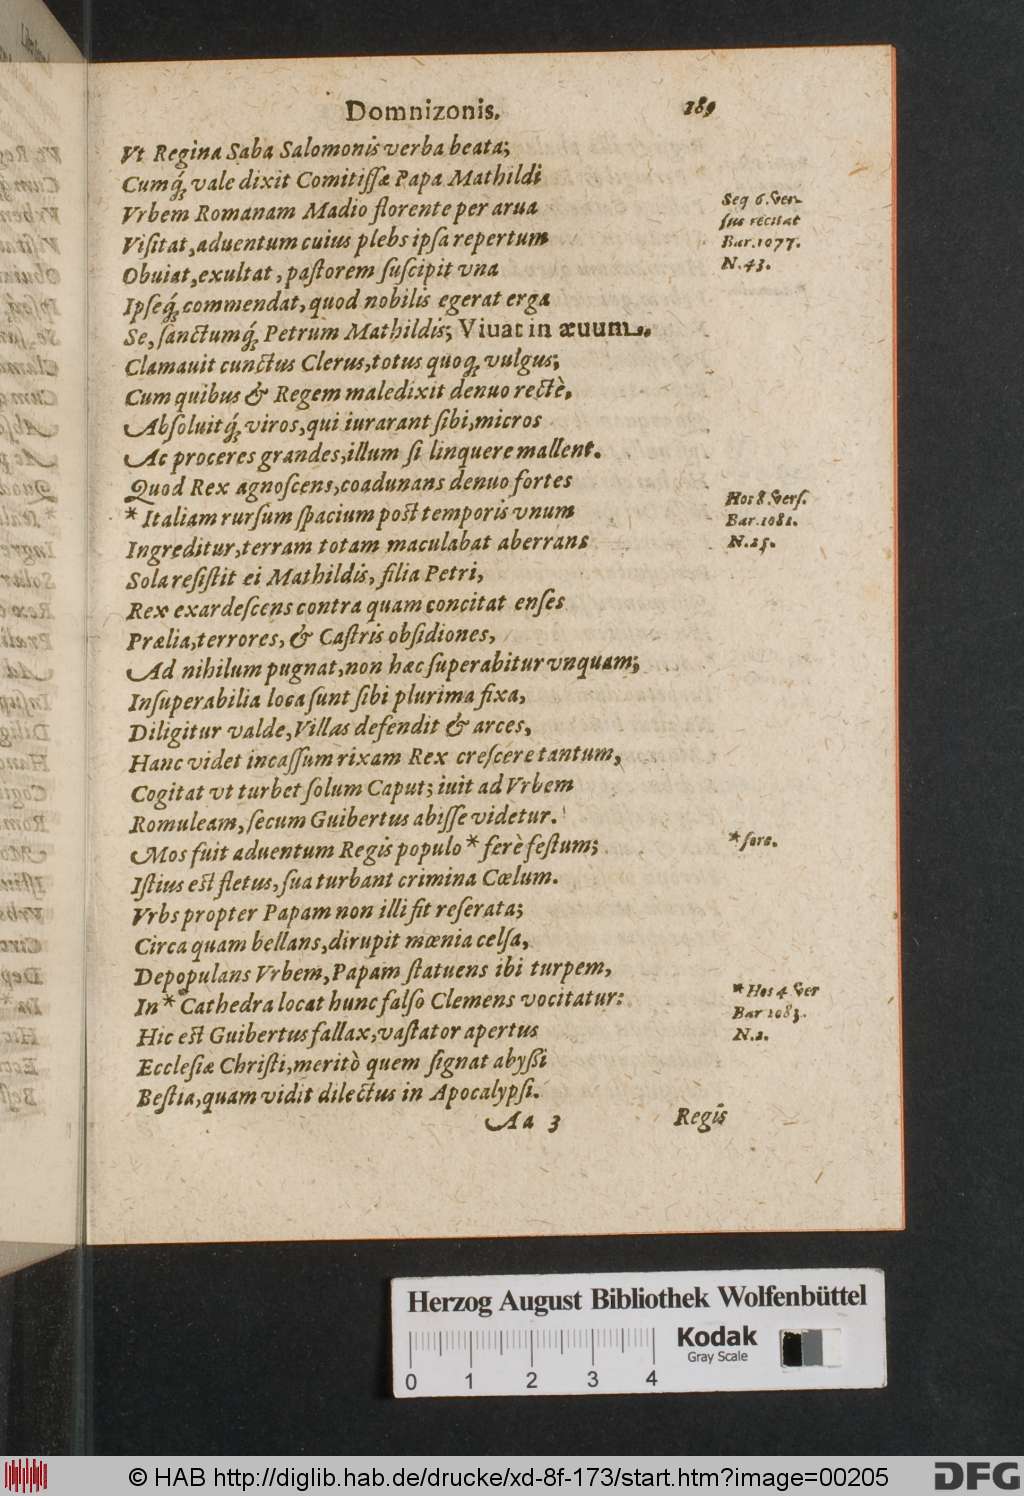 Domnizonis. 189
Vt Regina Saba Salomonis verba beata;
Cumq́; vale dixit Comitiſſæ Papa Mathildi
Vrbem Romanam Madio florente per arua
Viſitat, aduentum cuius plebs ipſa repertum
Obuiat, exultat, paſtorem ſuſcipit vna
Ipſeq́; commendat, quod nobilis egerat erga
Se, ſanctumq́; Petrum Mathildis; Viuat in æuum.
Clamauit cunctus Clerus, totus quoq; vulgus;
Cum quibus & Regem maledixit denuo rectè,
Abſoluitq́; viros, qui iurarant ſibi, micros
Ac proceres grandes, illum ſi linquere mallent.
Quod Rex agnoſcens, coadunans denuo fortes
* Italiam rurſum ſpacium poſt temporis vnum
Ingreditur, terram totam maculabat aberrans
Sola reſiſtit ei Mathildis, filia Petri,
Rex exardeſcens contra quam concitat enſes
Prælia, terrores, & Caſtris obſidiones,
Ad nihilum pugnat, non hæc ſuperabitur vnquam;
Inſuperabilia loca ſunt ſibi plurima fixa,
Diligitur valde, Villas defendit & arces,
Hanc videt incaſſum rixam Rex creſcere tantum,
Cogitat vt turbet ſolum Caput; iuit ad Vrbem
Romuleam, ſecum Guibertus abiſſe videtur.
Mos fuit aduentum Regis populo * ferè feſtum;
Iſtius eſt fletus, ſua turbant crimina Cœlum.
Vrbs propter Papam non illi fit reſerata;
Circa quam bellans, dirupit mœnia celſa,
Depopulans Vrbem, Papam ſtatuens ibi turpem,
In * Cathedra locat hunc falſo Clemens vocitatur:
Hic eſt Guibertus fallax, vaſtator apertus
Eccleſiæ Chriſti, meritò quem ſignat abyßi
Beſtia, quam vidit dilectus in Apocalypſi.
Aa 3 Regis
Seq 6. Ver-
ſus recitat
Bar. 1077.
N. 43.
Hos 8. Verſ.
Bar. 1081.
N. 25.
* fore.
* Hos 4 Ver
Bar 1083.
N. 2.
Herzog August Bibliothek Wolfenbüttel
Kodak
Gray Scale
0 1 2 3 4
© HAB http://diglib.hab.de/drucke/xd-8f-173/start.htm?image=00205
DFG